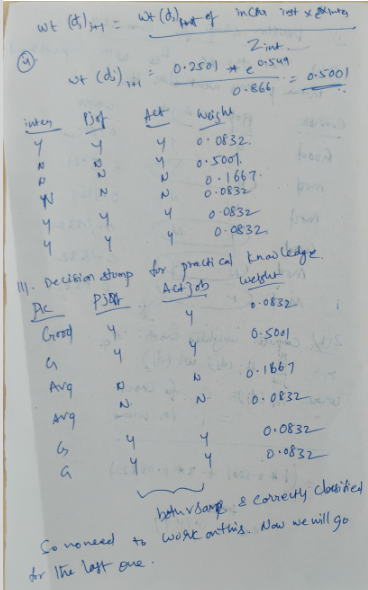 wt (di)i+1 = wt (di) of incorr inst x e
Zint.
④ wt (di)i+1 = 0.2501 * e 0.549 = 0.5001
0.866
inter PJof Act Weight
Y Y Y 0.0832.
N N Y 0.5001.
N N N 0.1667.
N N N 0.0832
Y Y Y 0.0832
Y Y Y 0.0832
III. Decision stump for practical knowledge.
PK PJof Act job weight
Good Y Y 0.0832
G Y Y 0.5001
Avg N N 0.1667
Avg N N 0.0832
G Y Y 0.0832
G Y Y 0.0832
both r same & correctly classified
So no need to work on this. Now we will go
for the last one.